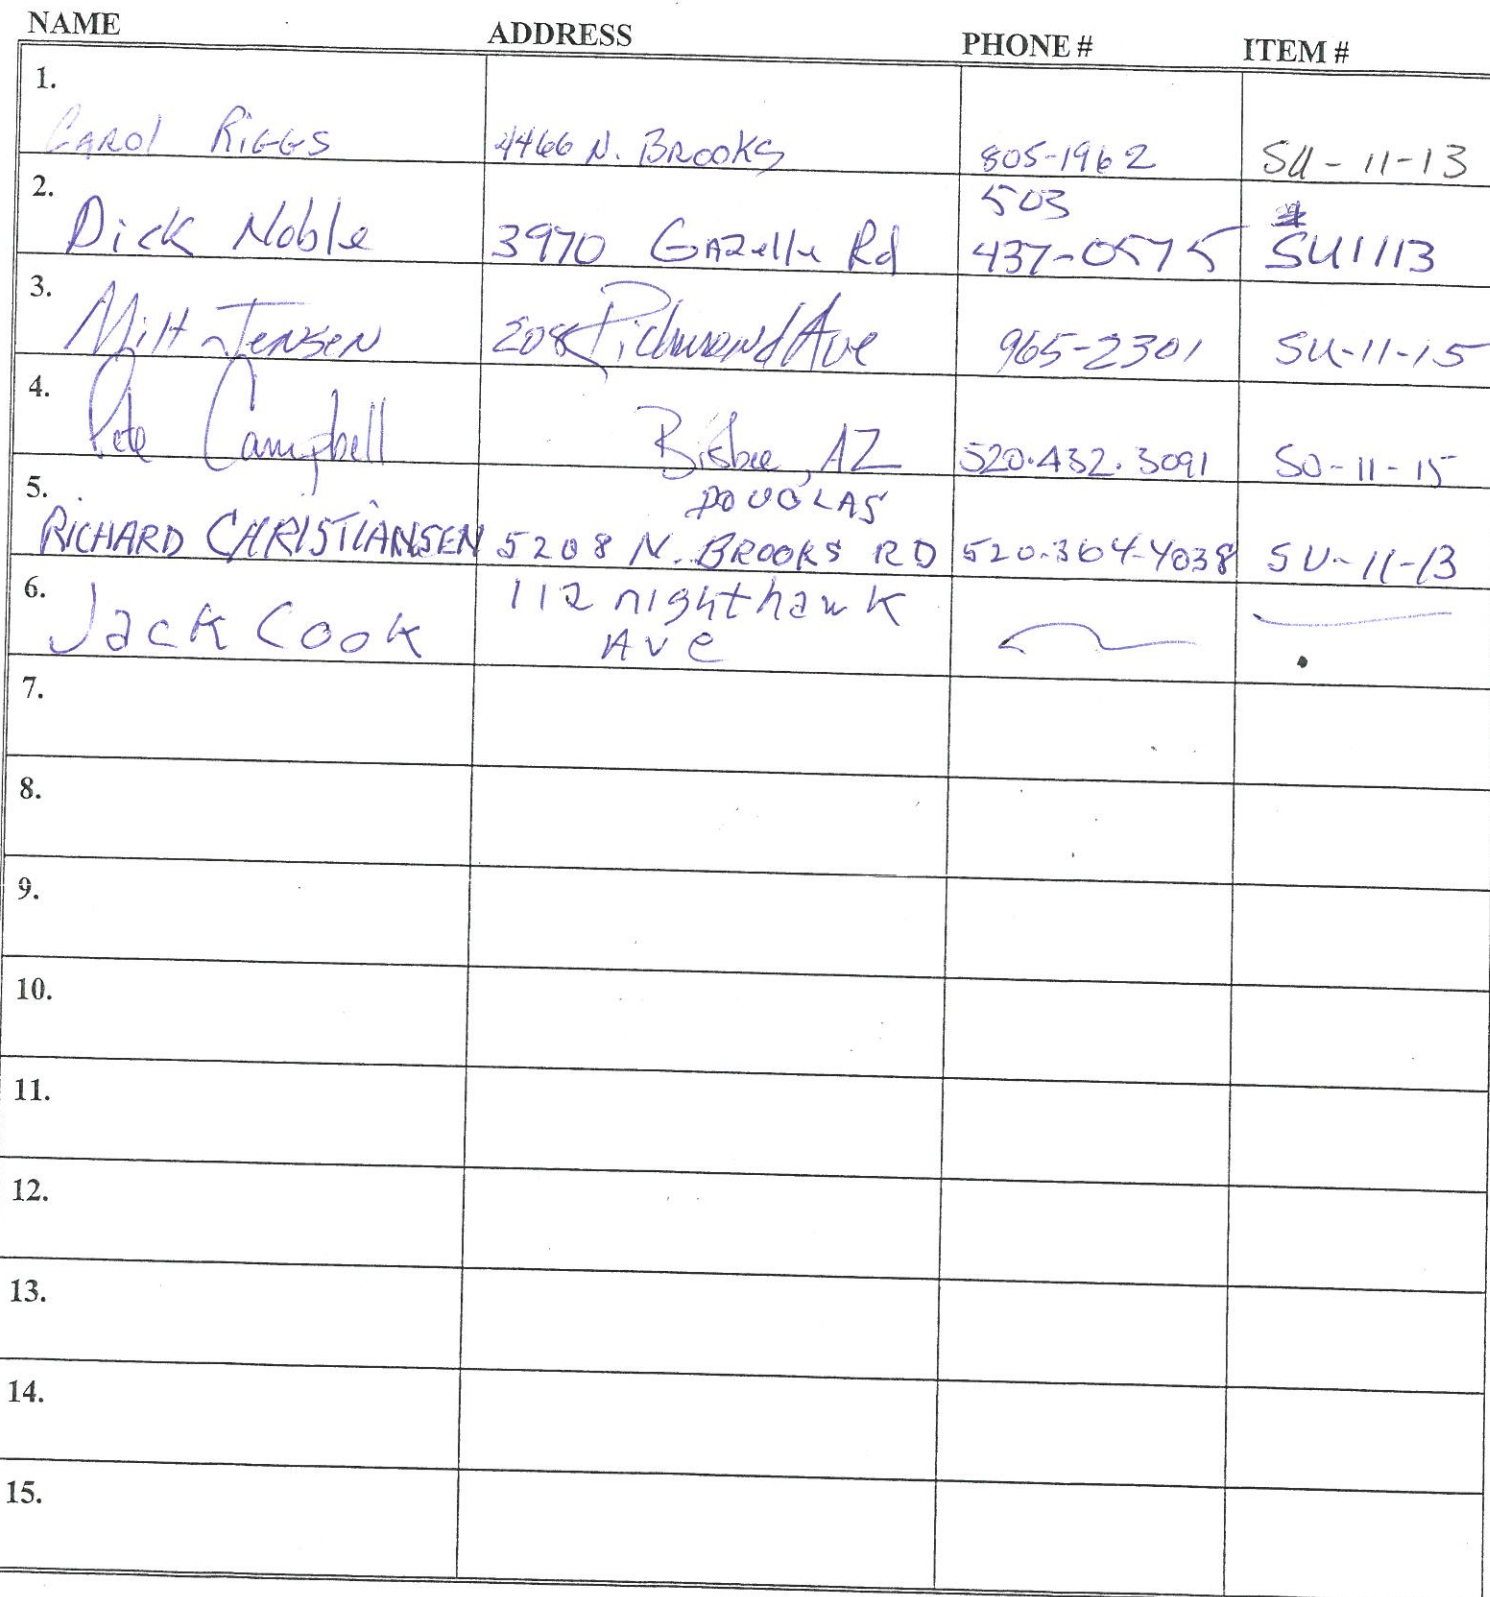 NAME ADDRESS PHONE # ITEM #
1.
CAROL RIGGS 4466 N. BROOKS 805-1962 SU-11-13
2. 503
Dick Noble 3970 GAZelle Rd 437-0575 SU1113
3.
Milt JENSEN 208 Richmond Ave 965-2301 SU-11-15
4.
Pete Campbell Bisbee, AZ 520.432.3091 SU-11-15
5. DOUGLAS
RICHARD CHRISTIANSEN 5208 N. BROOKS RD 520-364-4038 SU-11-13
6. 112 nighthawk
Jack Cook Ave
7.
8.
9.
10.
11.
12.
13.
14.
15.